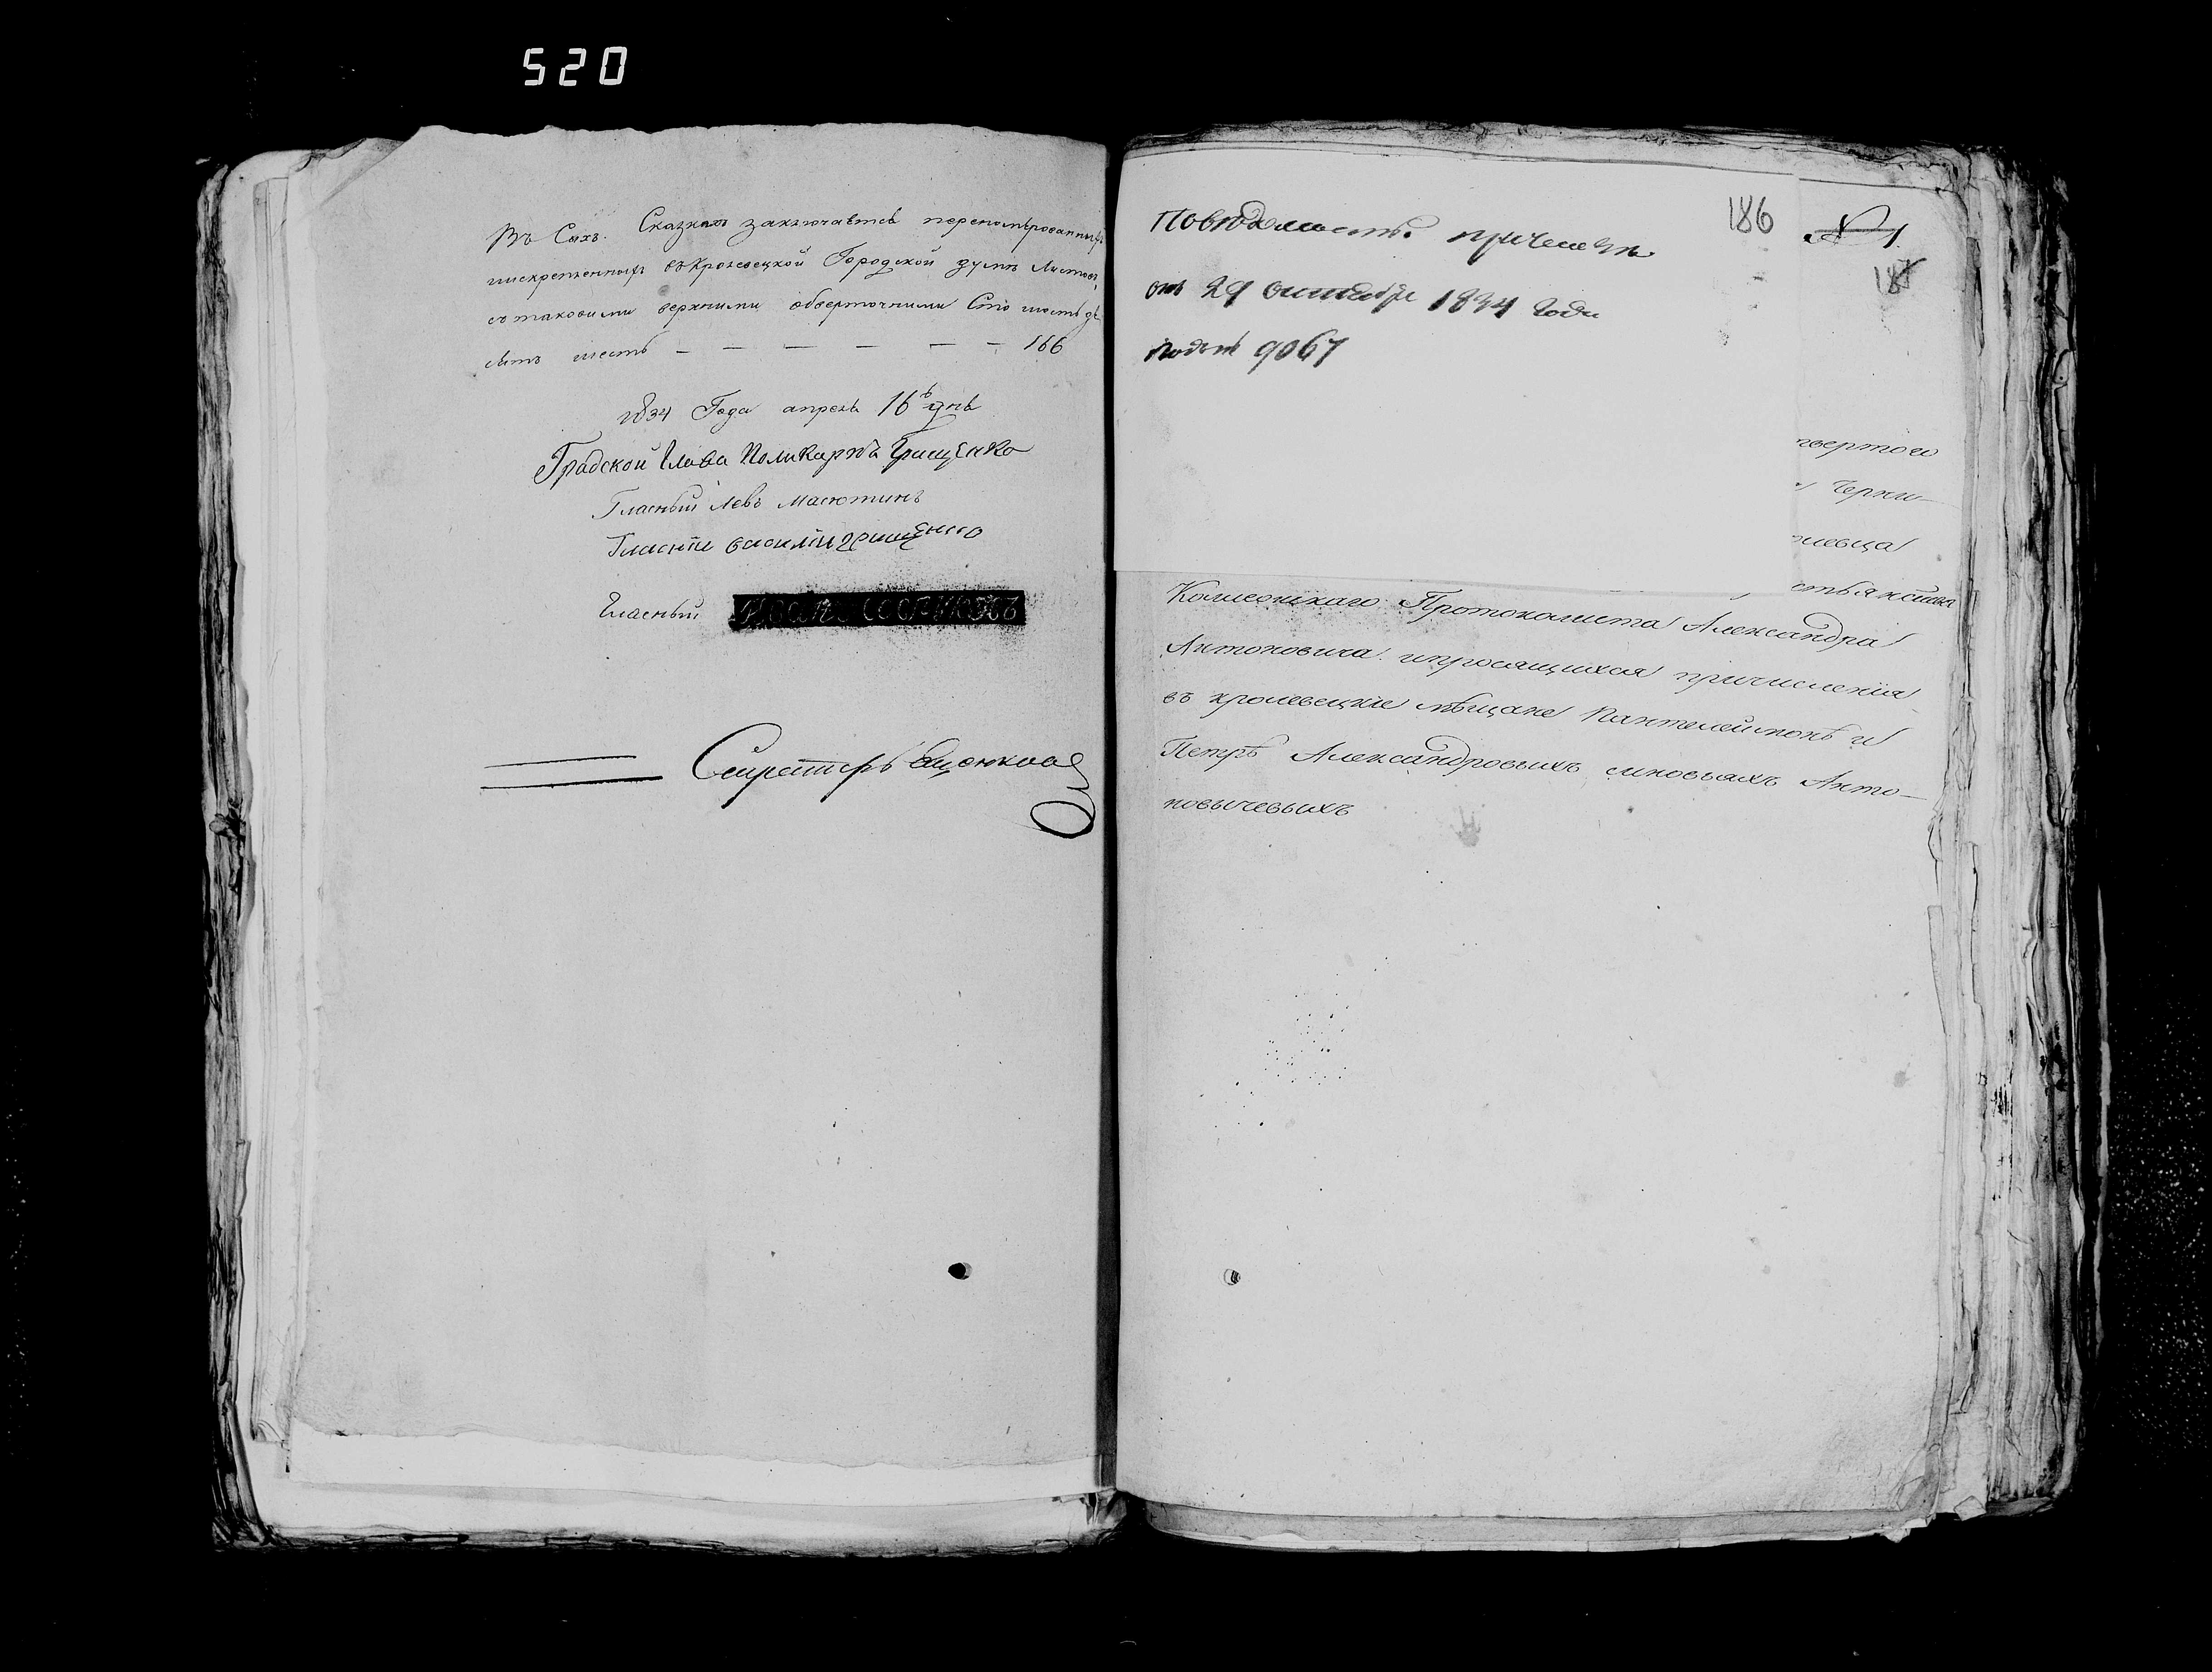 520
Въ Сихъ Сказкахъ заключаетсѣ переномѣрованныхъ
искрепленныхъ въ Кролевецкой Городской думѣ Листовъ
стаковими верхними обверточними Сто шестьде
сятъ шесть — — — — — — 166
1834 Года апрелѣ 16ъ днѣ
Градской Глава Поликарпъ Грищенко
Гласный Левъ Масютинъ
Гласнїи василїи Грищенко
Гласный
Секретарь Ященков
186
№ 1.
187
По вѣдомости причислен
отъ 29 октября 1834 года
подъ № 9067
твертой
Черни-
левца
Колежскаго Протоколиста Александра
Антоновича ипросящихся причисления
въ кролевецкїе мѣщане Пантелеймонъ и
Петръ Александровыхъ синовьяхъ Анто-
новычевыхъ